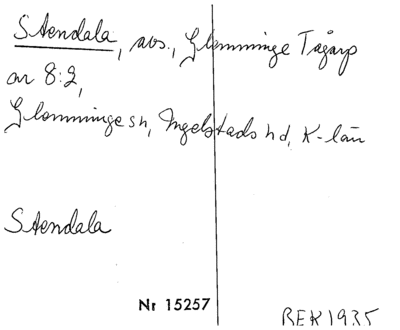 Stendala, avs., Glemminge Tågarp
nr 8:2,
Glemminge sn, Ingelstads hd, K-län
Stendala
Nr 15257
BEK 1935